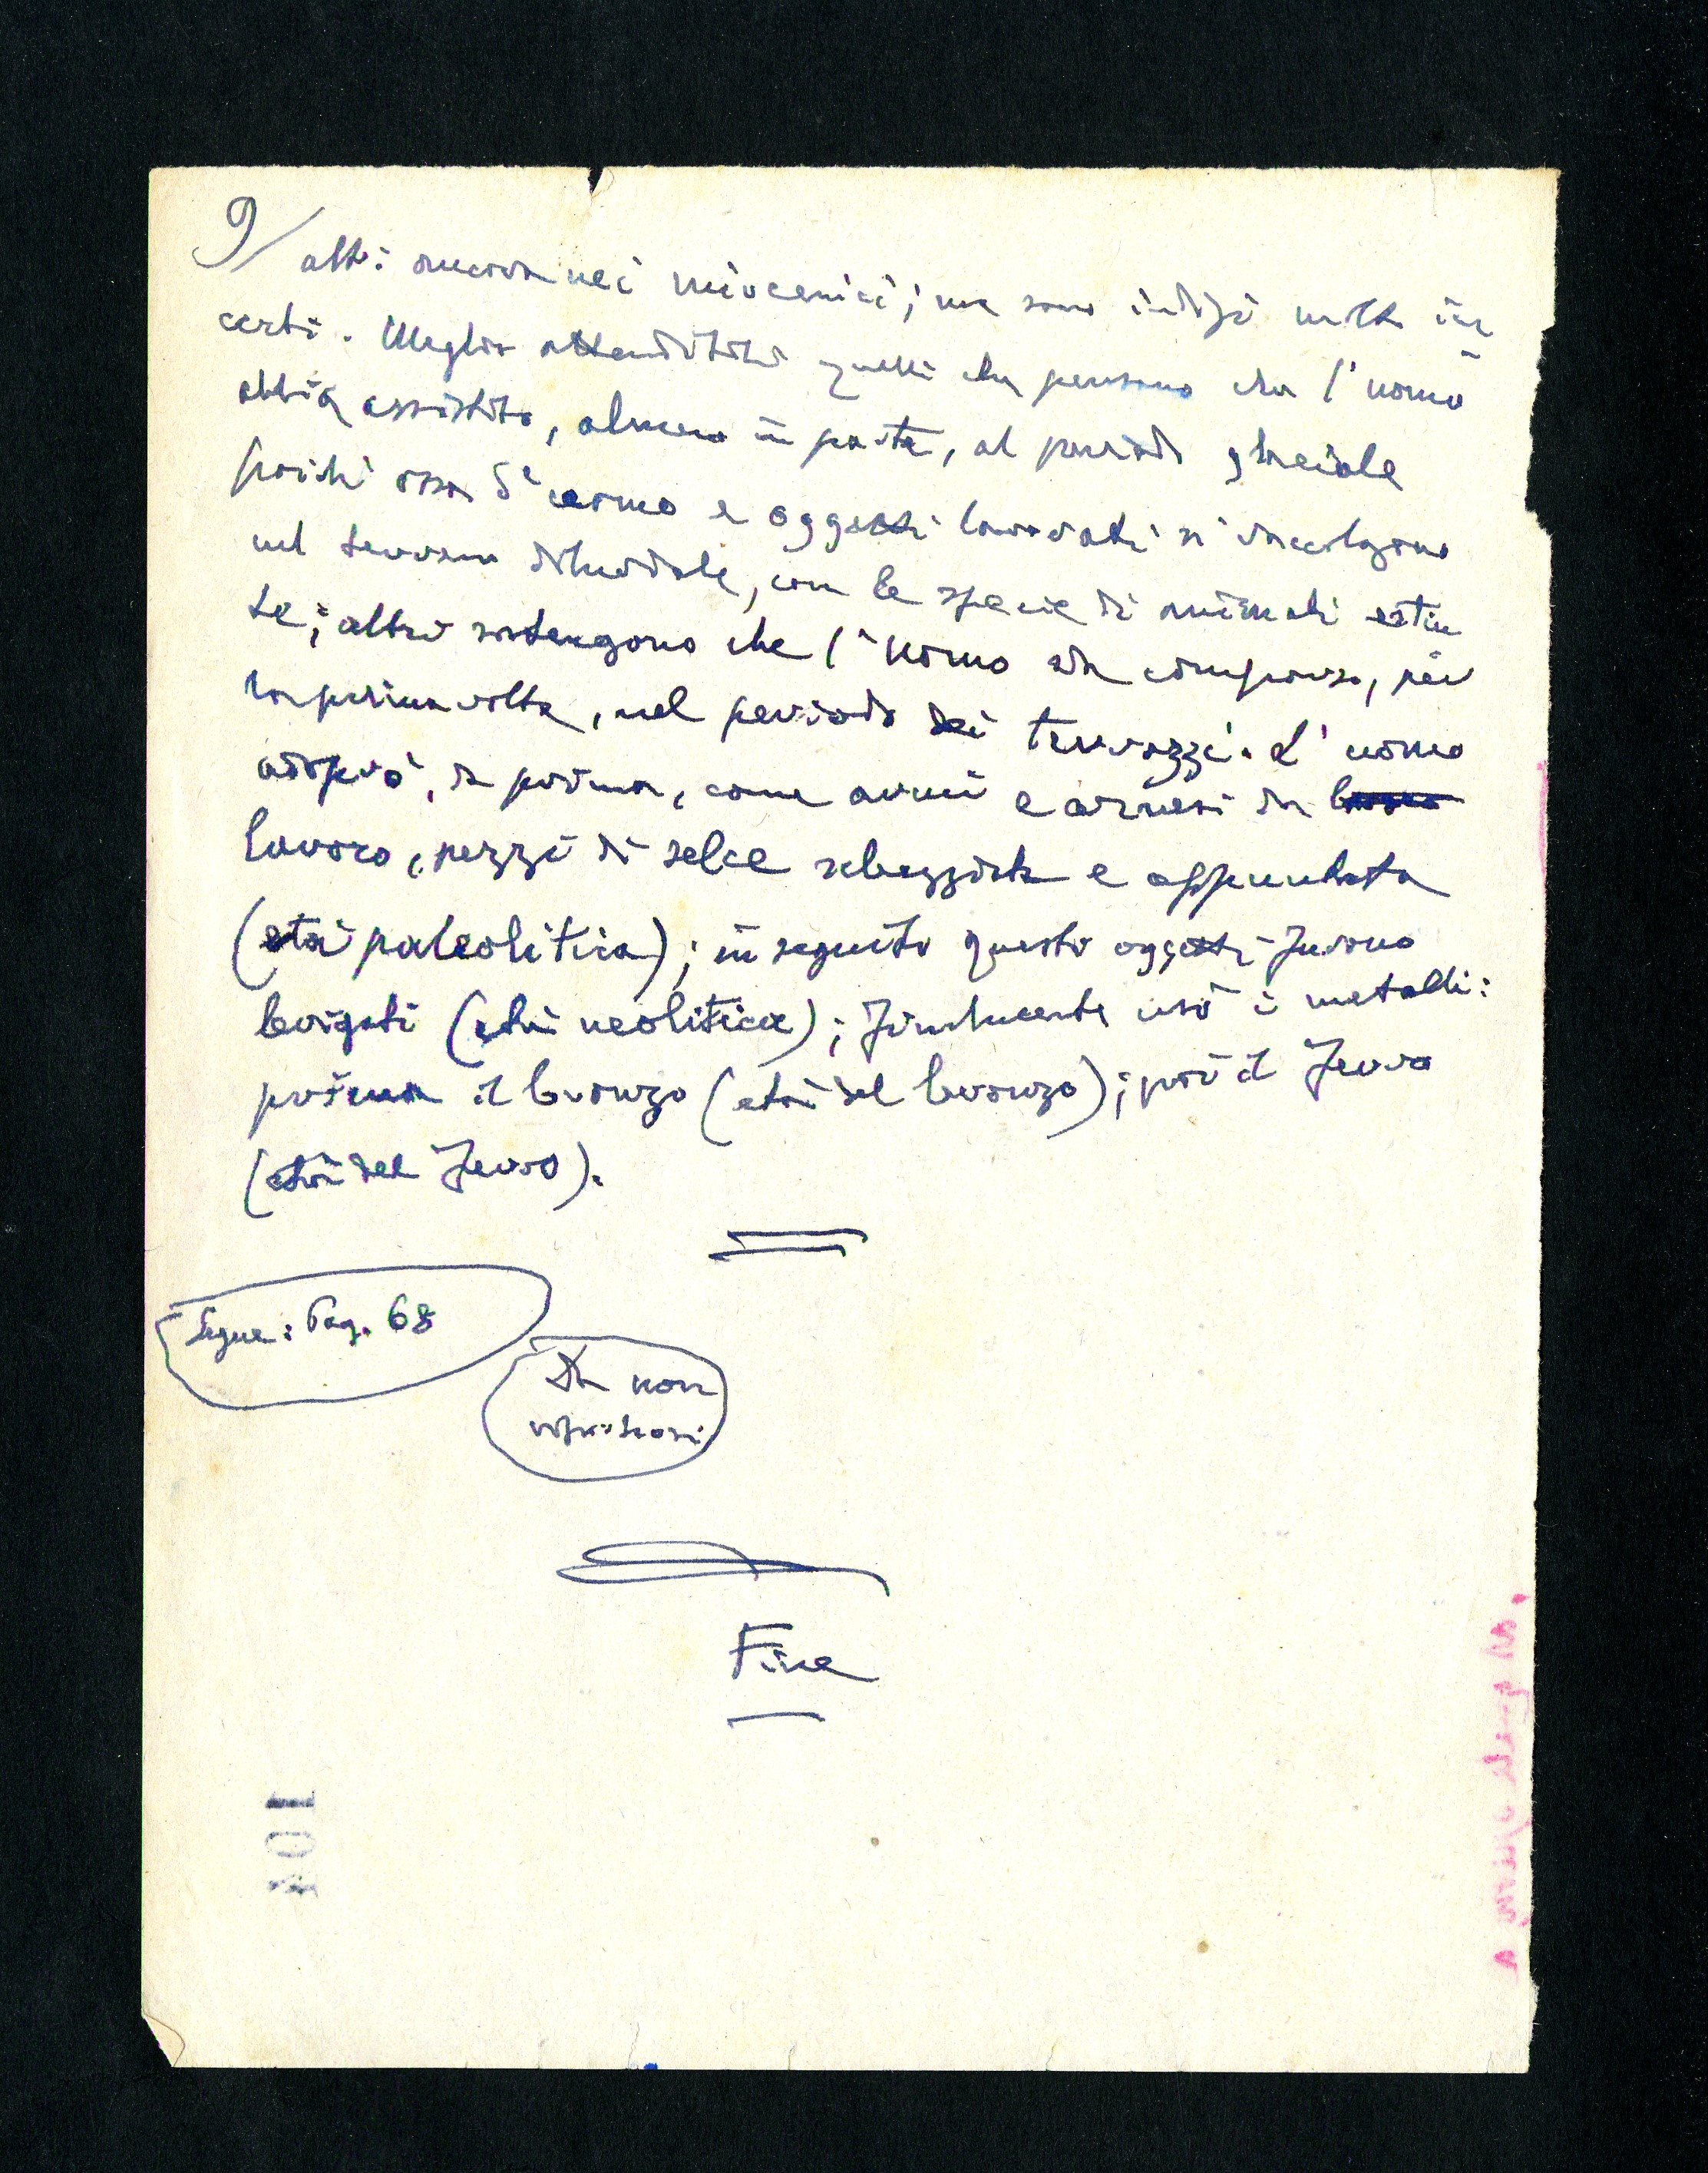 9/ altri ancora nei miocenici; ma sono indizi molto in
certi. Meglio attendibili quelli che pensano che l'uomo
abbia assistito, almeno in parte, al periodo glaciale
poiché ossa d'uomo e oggetti lavorati si raccolgono
nel terreno diluviale, con le specie di animali estin
te; altri sostengono che l'uomo sia comparso, per
la prima volta, nel periodo dei terrazzi. L'uomo
adoperò, da prima, come armi e arnesi da
lavoro, pezzi di selce scheggiata e appuntata
(età paleolitica); in seguito questi oggetti furono
levigati (età neolitica); finalmente usò i metalli:
prima il bronzo (età del bronzo); poi il ferro
(età del ferro).
Segue: Pag. 68
Da non
Fine
104